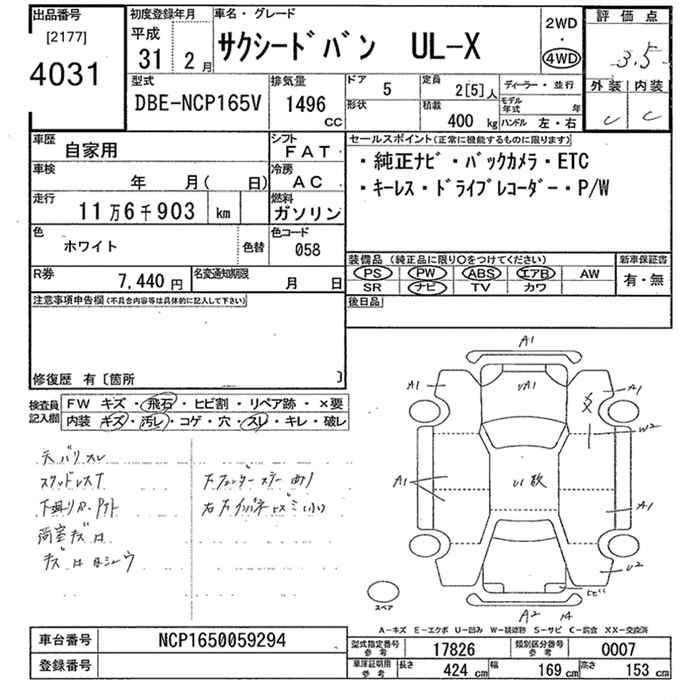 出品番号
[2177]
4031
初度登録年月
平成
31年 2月
車名・グレード
サクシードバン UL-X
2WD
・
4WD
評価点
3.5
外装 内装
C C
型式
DBE-NCP165V
排気量
1496
CC
ドア
5
形状
定員
2[5]人
積載
400 kg
ディーラー・並行
モデル年式 年
ハンドル 左・右
車歴
自家用
シフト
FAT
車検
年 月( 日)
冷房
AC
走行
11万6千903 km
燃料
ガソリン
色
ホワイト
色替
色コード
058
R券
7,440円
名変通知期限
月 日
セールスポイント(正常に機能するものに限ります)
・純正ナビ・バックカメラ・ETC
・キーレス・ドライブレコーダー・P/W
装備品(純正品に限り○をつけてください)
PS PW ABS エアB AW
SR ナビ TV カワ
新車保証書
有・無
後日品
注意事項申告欄(不具合内容等は具体的に記入して下さい)
修復歴 有〔箇所 〕
検査員記入欄
FW キズ・飛石・ヒビ割・リペア跡・×要
内装 キズ・汚レ・コゲ・穴・スレ・キレ・破レ
A1
A1
A1
A1
W2
U1
A1
A1
U2
ヒビ
A2
スペア
A-キズ E-エクボ U-凹み W-補修跡 S-サビ C-腐食 XX-交換済
車台番号
NCP1650059294
登録番号
型式指定番号
参考
17826
類別区分番号
参考
0007
車庫証明用
参考
長さ 424 cm
幅 169 cm
高さ 153 cm